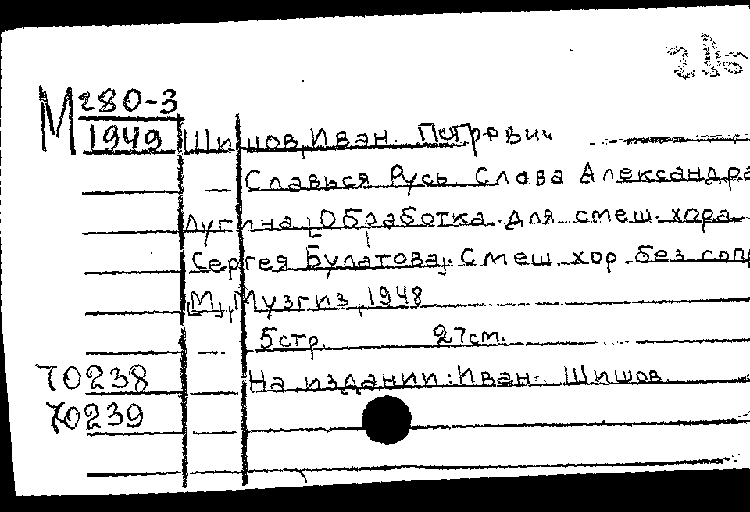 М 280-3
1949
Шишов, Иван Петрович
Славься Русь. Слова Александра
Лугина. [Обработка для смеш. хора
Сергея Булатова]. Смеш. хор без сопр
М., Музгиз, 1948
5стр. 27см.
70238 На издании: Иван Шишов
70239